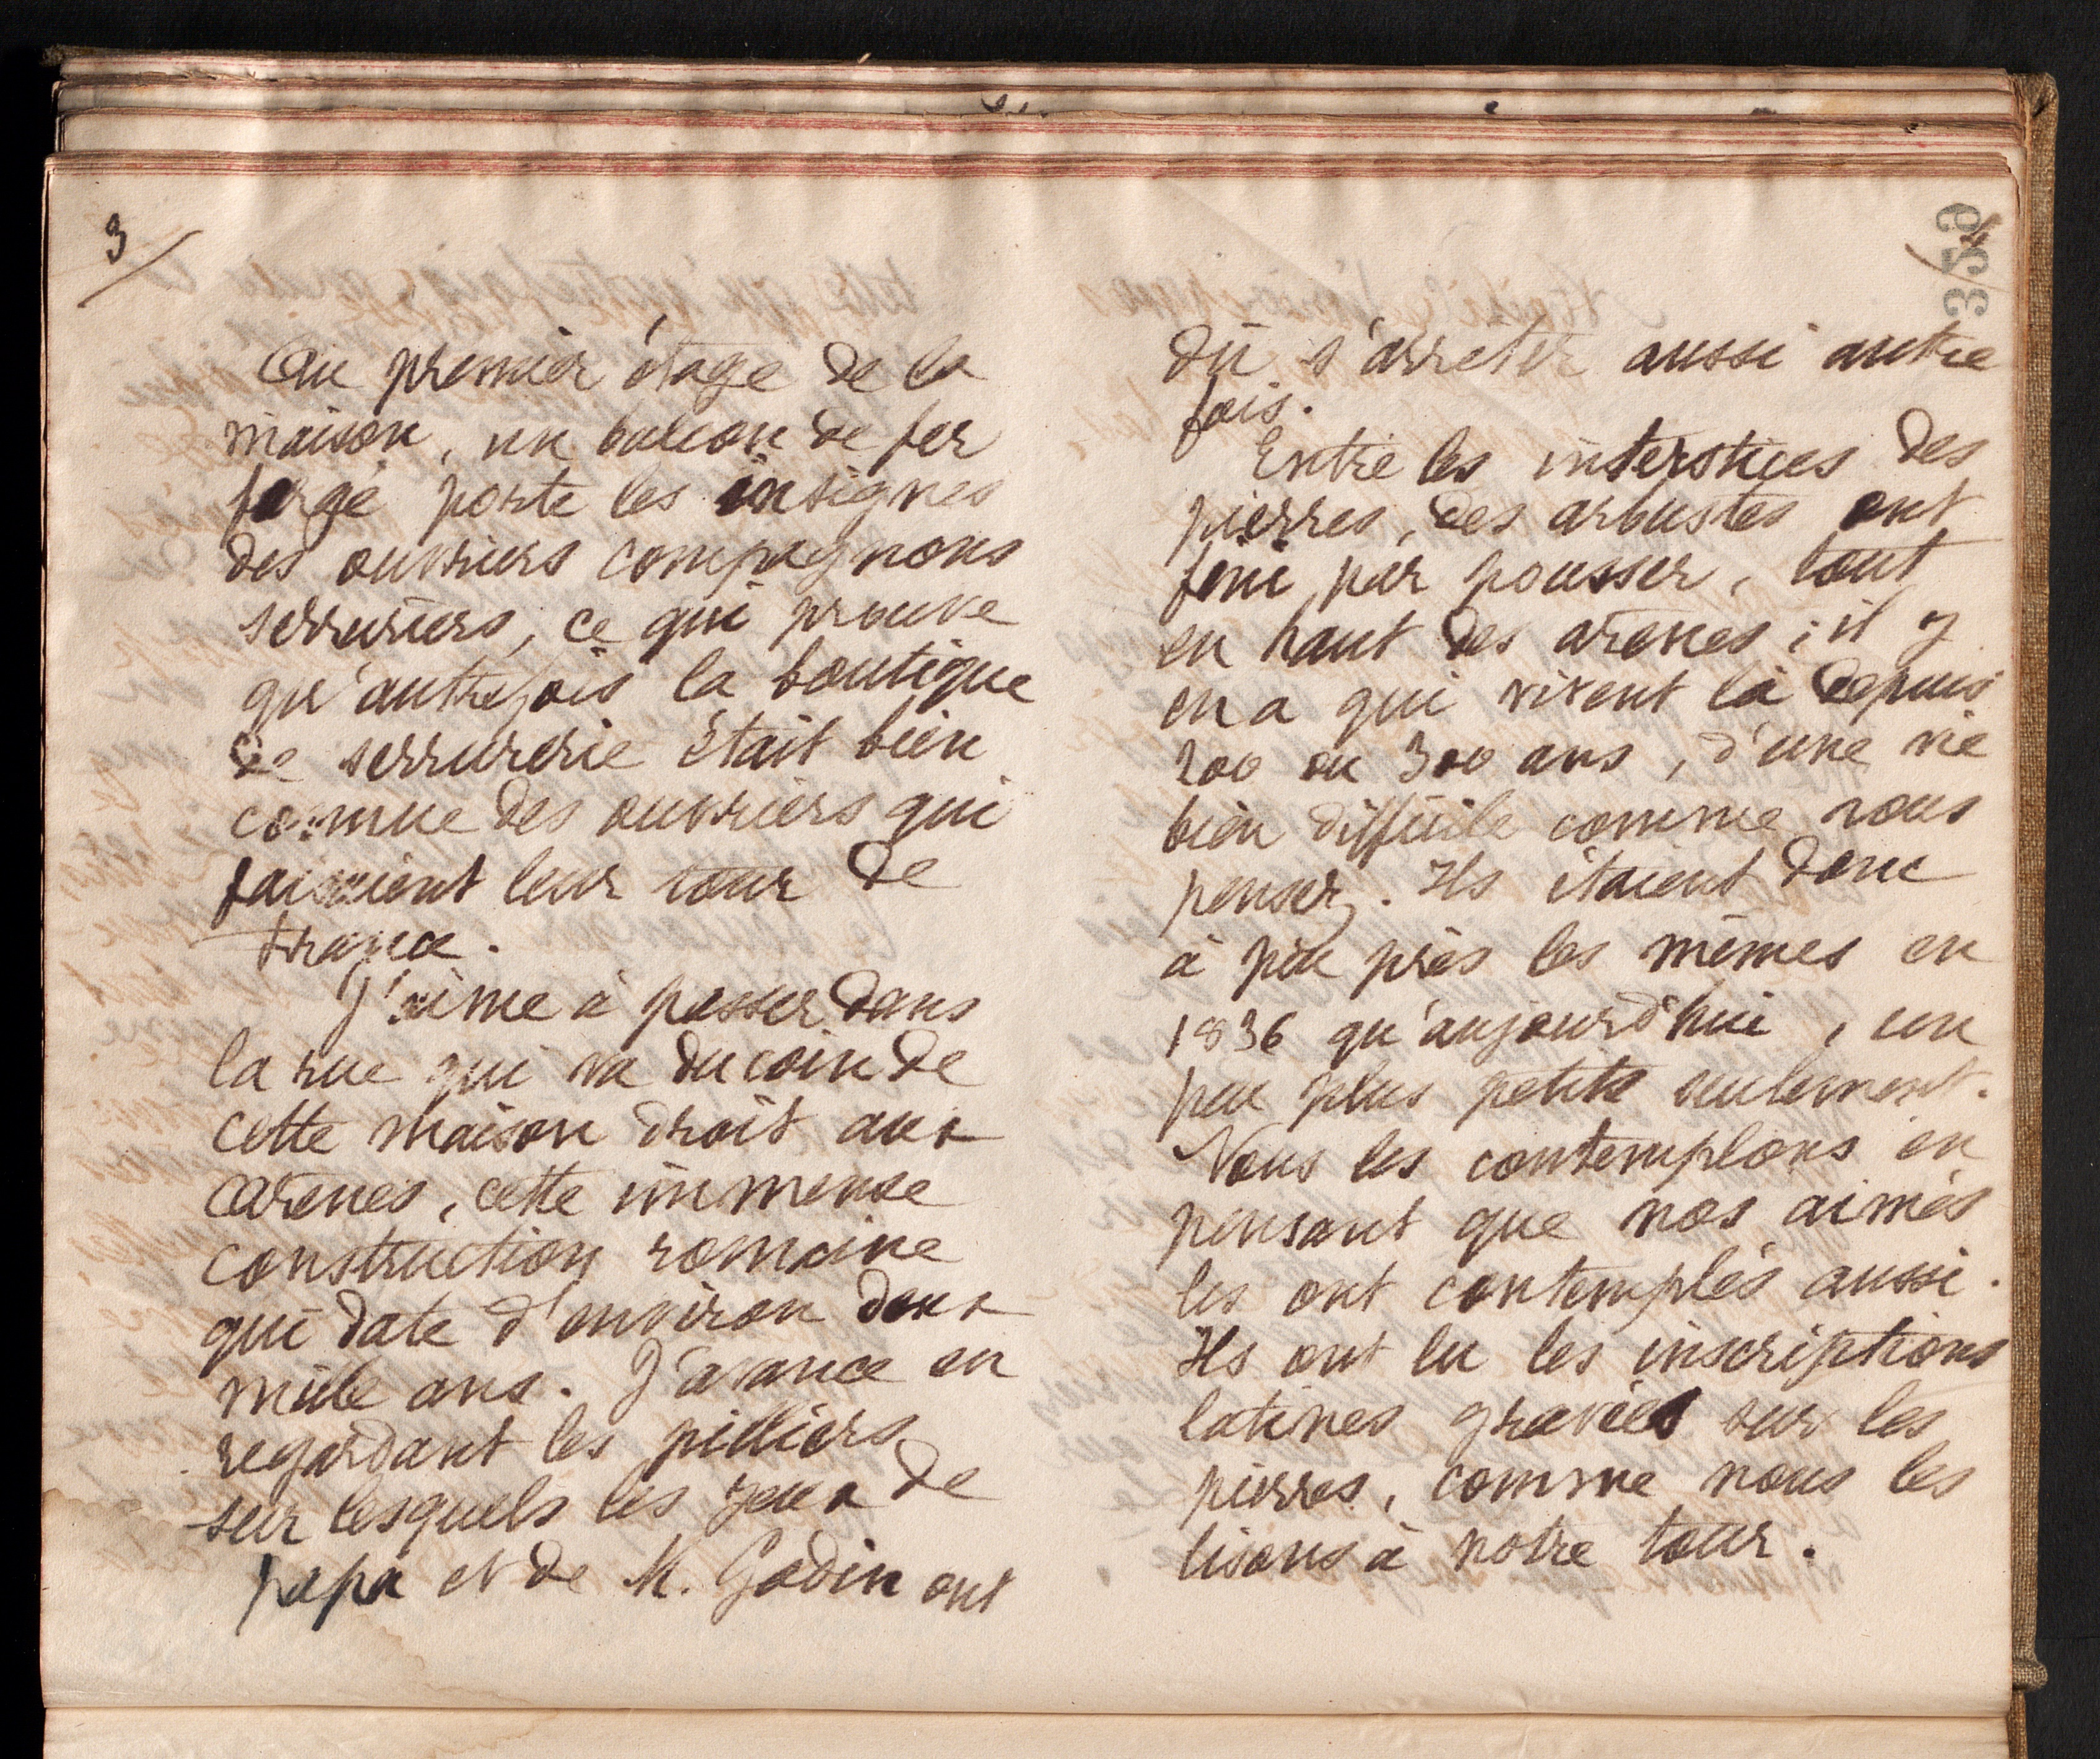 3/
Au premier étage de la
maison, un balcon de fer
forgé porte les insignes
des ouvriers compagnons
serruriers, ce qui prouve
qu'autrefois la boutique
de serrurerie était bien
connue des ouvriers qui
faisaient leur tour de
France.
J'aime à passer dans
la rue qui va du coin de
cette maison droit aux
arènes, cette immense
construction romaine
qui date d'environ deux
mille ans. J'avance en
regardant les pilliers
sur lesquels les yeux de
papa et de M. Godin ont
359
dû s'arrêter aussi autre
fois.
Entre les interstices des
pierres, des arbustes ont
fini par pousser, tout
en haut des arènes ; il y
en a qui vivent là depuis
200 ou 300 ans, d'une vie
bien difficile comme vous
pensez. Ils étaient donc
à peu près les mêmes en
1836 qu'aujourd'hui, un
peu plus petits seulement.
Nous les contemplons en
pensant que nos aimés
les ont contemplés aussi.
Ils ont lu les inscriptions
latines gravées sur les
pierres, comme nous les
lisons à notre tour.